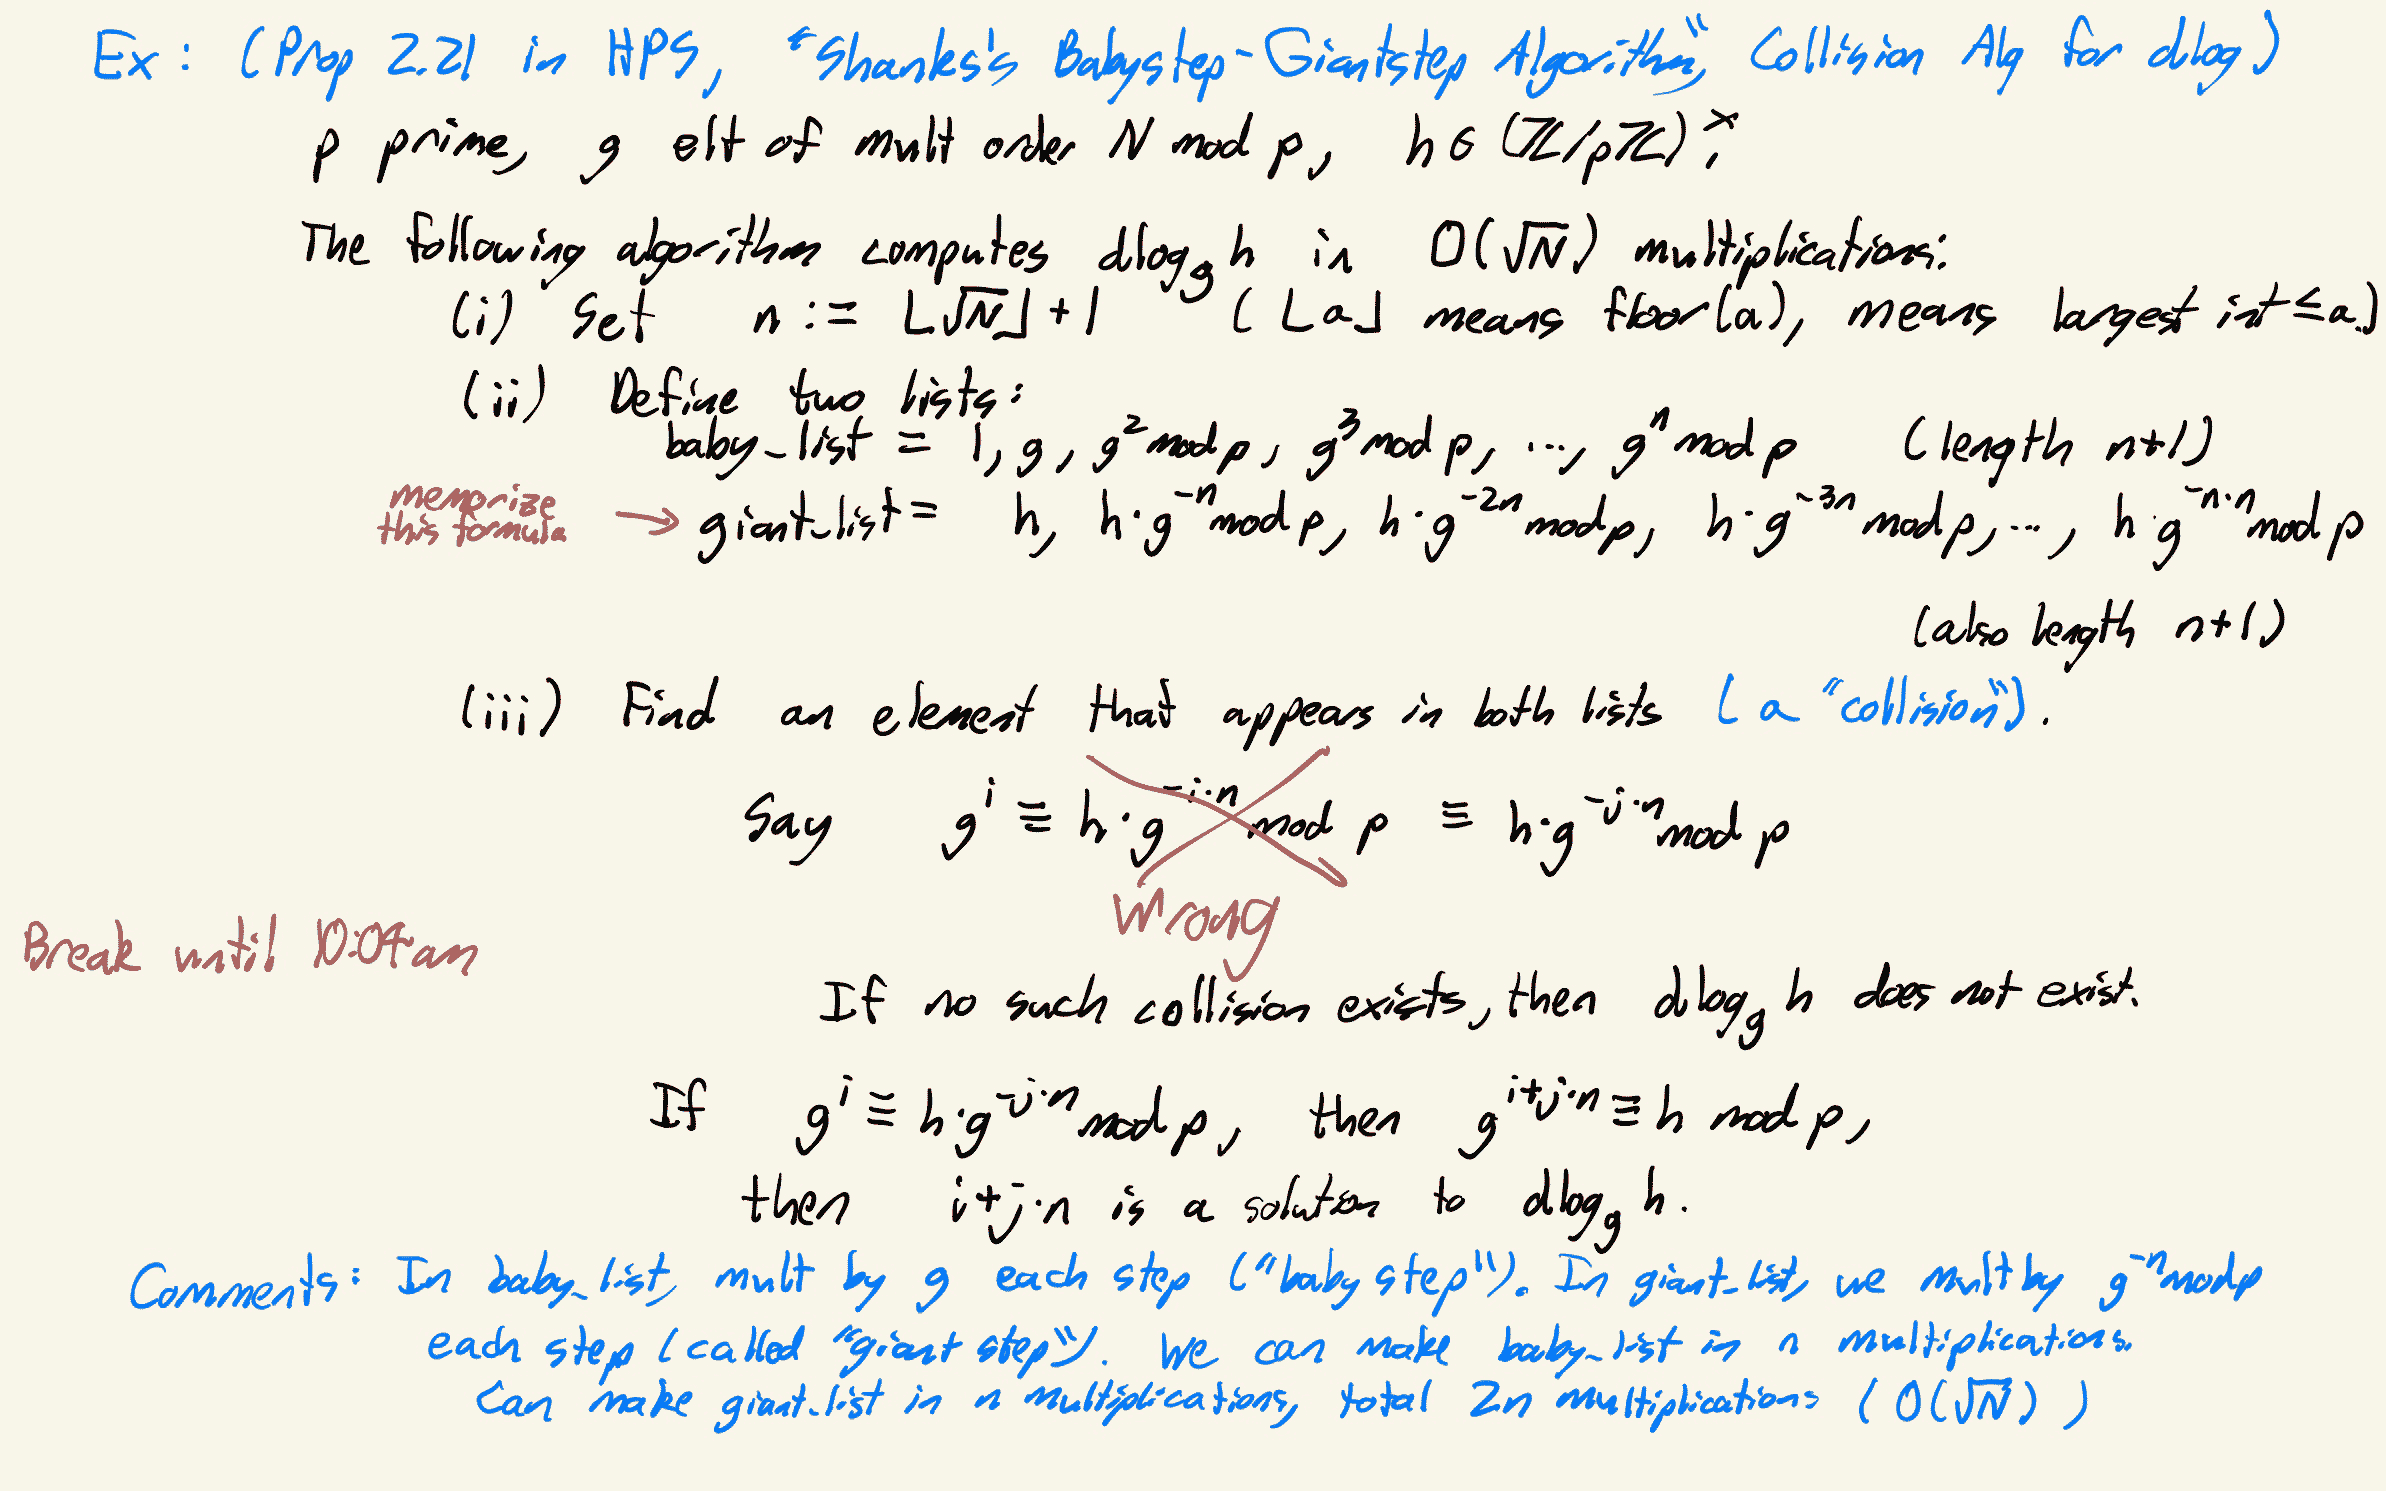 Ex: (Prop 2.21 in HPS, "Shanks's Babystep-Giantstep Algorithm," Collision Alg for dlog)
p prime, g elt of mult order N mod p, h ∈ (ℤ/pℤ)^×,
The following algorithm computes dlog_g h in O(√N) multiplications:
(i) Set n := ⌊√N⌋ + 1 (⌊a⌋ means floor(a), means largest int ≤ a.)
(ii) Define two lists:
baby_list = 1, g, g^2 mod p, g^3 mod p, ..., g^n mod p (length n+1)
memorize
this formula
→ giant_list = h, h·g^{-n} mod p, h·g^{-2n} mod p, h·g^{-3n} mod p, ..., h·g^{-n·n} mod p
(also length n+1)
(iii) Find an element that appears in both lists (a "collision").
Say g^i ≡ h·g^{-i·n} mod p ≡ h·g^{-j·n} mod p
Wrong
Break until 10:04am
If no such collision exists, then dlog_g h does not exist.
If g^i ≡ h·g^{-j·n} mod p, then g^{i+j·n} ≡ h mod p,
then i+j·n is a solution to dlog_g h.
Comments: In baby_list, mult by g each step ("baby step"). In giant_list, we mult by g^{-n} mod p
each step (called "giant step"). We can make baby_list in n multiplications.
Can make giant_list in n multiplications, total 2n multiplications (O(√N))